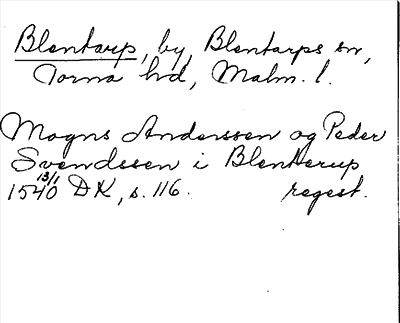 Blentarp, by, Blentarps sn,
Torna hd, Malm. l.
Mogns Anderssen og Peder
Svendssen i Blenterup
1540 13/1 DK, s. 116. regest.